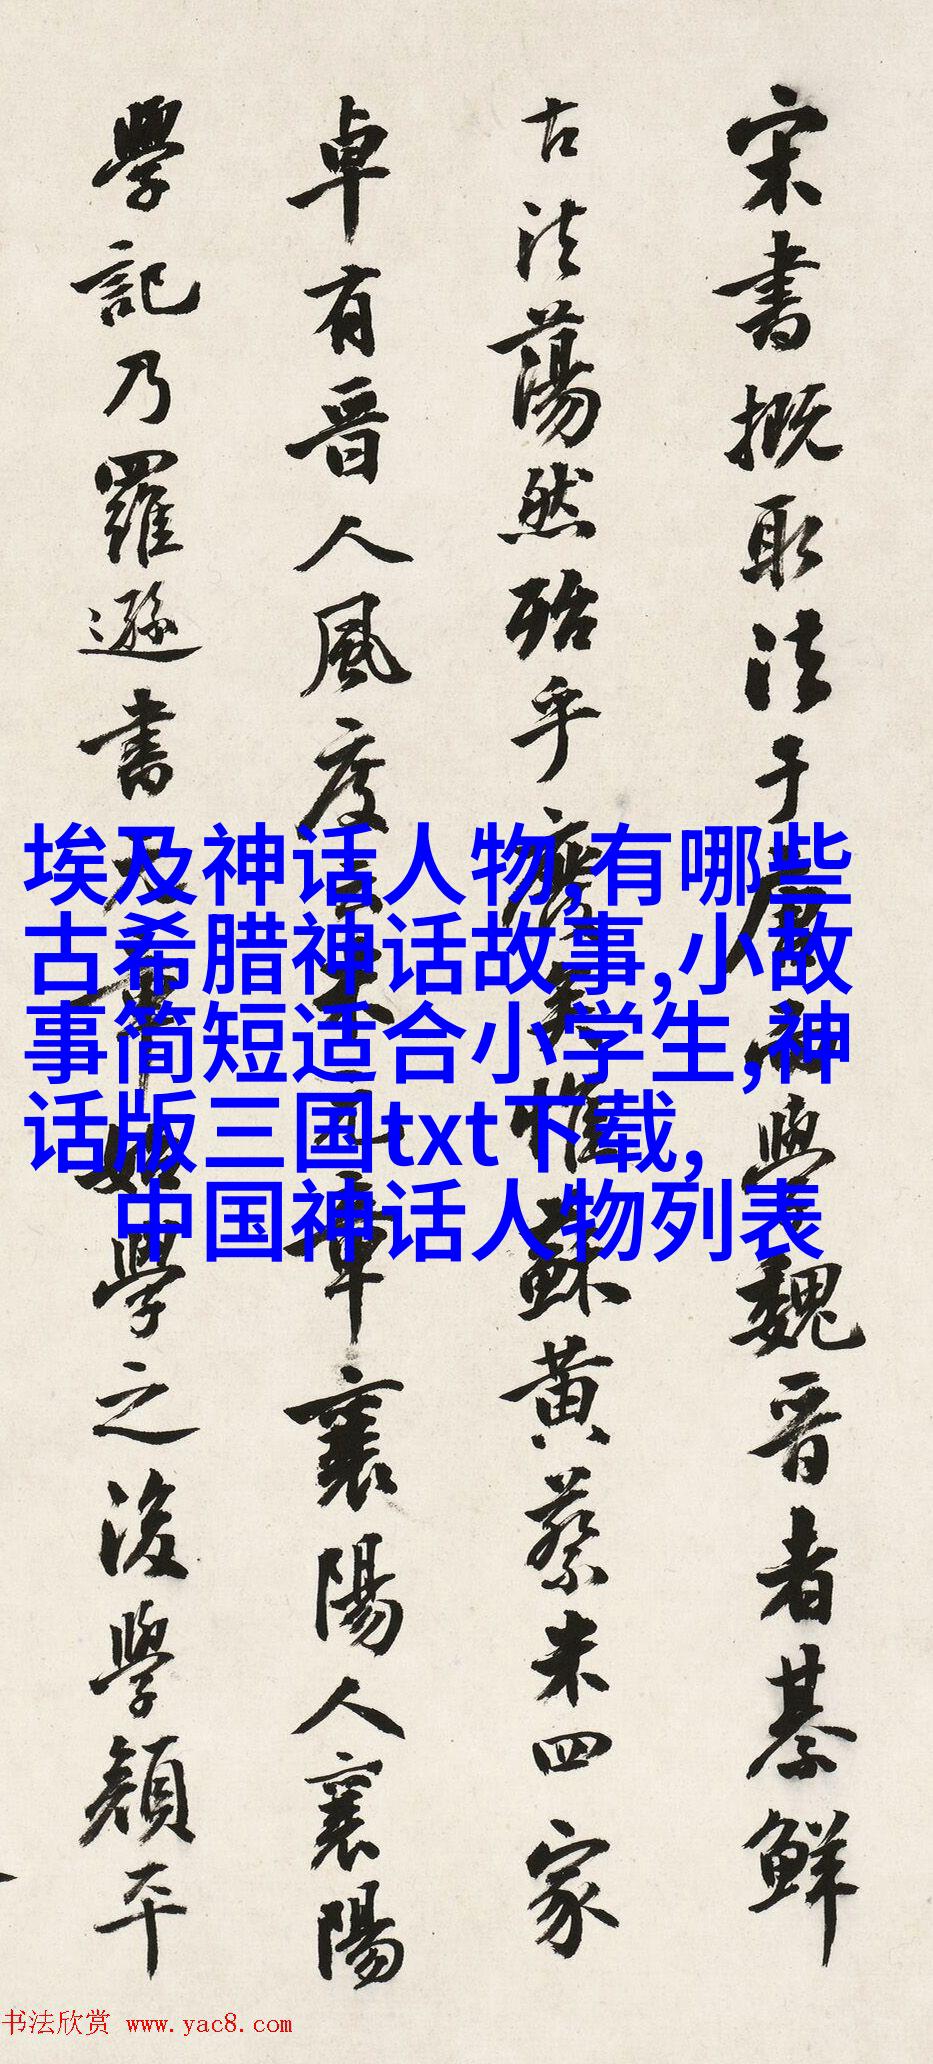 宋書概取法于唐而學魏晋者綦鮮
古法蕩然殆乎廢矣惟蘇黄蔡米四家
卓有晋人風度米元章襄陽人襄陽
學記乃羅遜書元章始學之後學顏平
埃及神话人物,有哪些
古希腊神话故事,小故
事简短适合小学生,神
话版三国txt下载,
中国神话人物列表
书法欣赏 www.yac8.com